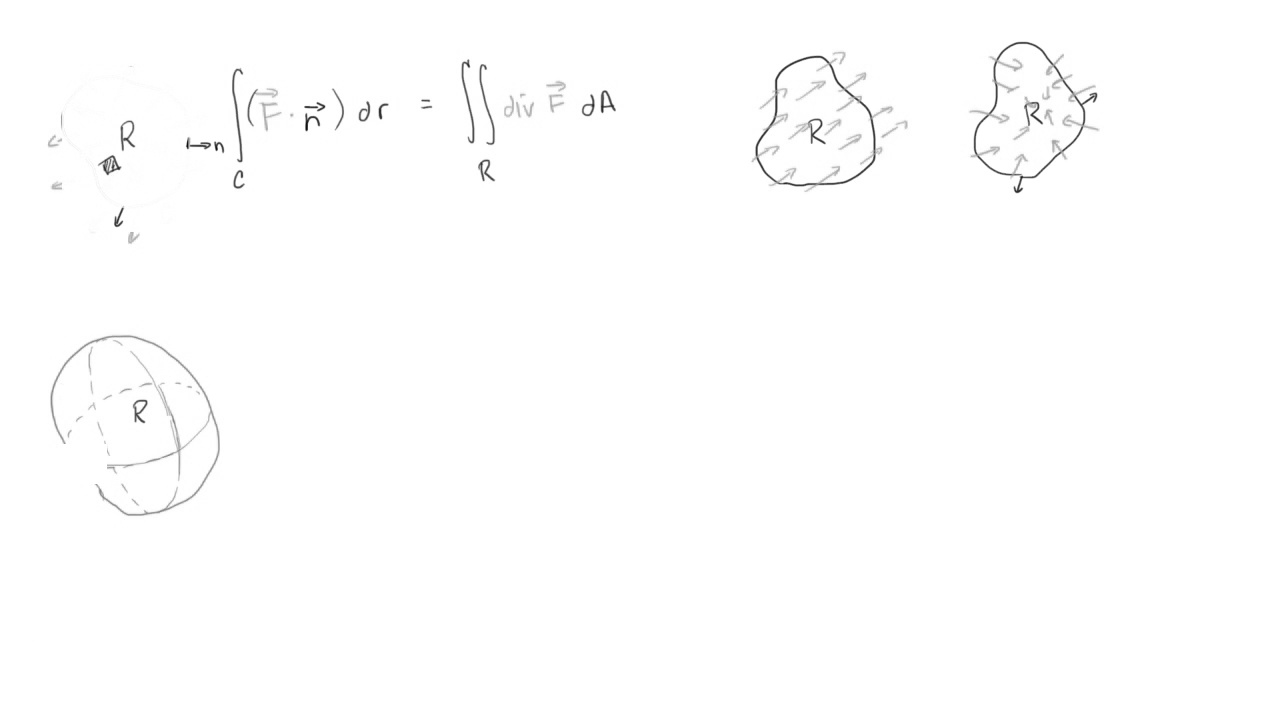 R
n
∫_C (F⃗ · n⃗) dr = ∬_R div F⃗ dA
R
R
R